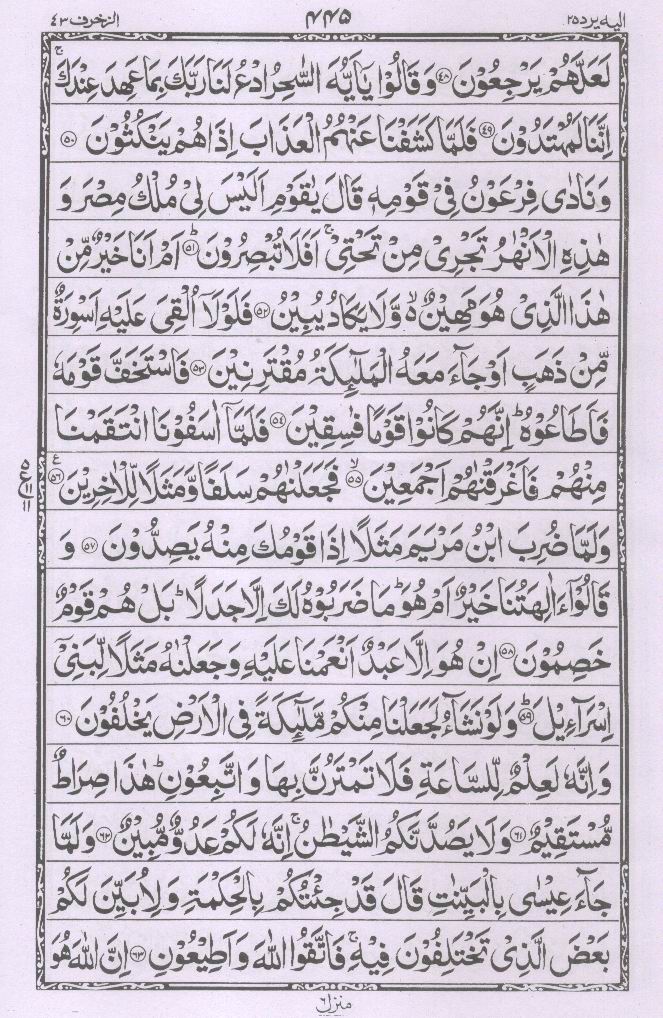 الیه یرد ۲۵ ۴۴۵ الزخرف ۴۳
لَعَلَّهُمْ يَرْجِعُوْنَ ۴۸ وَقَالُوْا يٰٓاَيُّهَ السّٰحِرُ ادْعُ لَنَا رَبَّكَ بِمَا عَهِدَ عِنْدَكَ ۚ
اِنَّنَا لَمُهْتَدُوْنَ ۴۹ فَلَمَّا كَشَفْنَا عَنْهُمُ الْعَذَابَ اِذَا هُمْ يَنْكُثُوْنَ ۵۰
وَنَادٰى فِرْعَوْنُ فِيْ قَوْمِهٖ قَالَ يٰقَوْمِ اَلَيْسَ لِيْ مُلْكُ مِصْرَ وَ
هٰذِهِ الْاَنْهٰرُ تَجْرِيْ مِنْ تَحْتِيْ ۚ اَفَلَا تُبْصِرُوْنَ ؕ ۵۱ اَمْ اَنَا خَيْرٌ مِّنْ
هٰذَا الَّذِيْ هُوَ مَهِيْنٌ ۙ۬ وَّلَا يَكَادُ يُبِيْنُ ۵۲ فَلَوْلَآ اُلْقِيَ عَلَيْهِ اَسْوِرَةٌ
مِّنْ ذَهَبٍ اَوْ جَآءَ مَعَهُ الْمَلٰٓئِكَةُ مُقْتَرِنِيْنَ ۵۳ فَاسْتَخَفَّ قَوْمَهٗ
فَاَطَاعُوْهُ ؕ اِنَّهُمْ كَانُوْا قَوْمًا فٰسِقِيْنَ ۵۴ فَلَمَّآ اٰسَفُوْنَا انْتَقَمْنَا
مِنْهُمْ فَاَغْرَقْنٰهُمْ اَجْمَعِيْنَ ۙ ۵۵ فَجَعَلْنٰهُمْ سَلَفًا وَّمَثَلًا لِّلْاٰخِرِيْنَ ۵۶ ع
وَلَمَّا ضُرِبَ ابْنُ مَرْيَمَ مَثَلًا اِذَا قَوْمُكَ مِنْهُ يَصِدُّوْنَ ۵۷ وَ
قَالُوْٓا ءَاٰلِهَتُنَا خَيْرٌ اَمْ هُوَ ؕ مَا ضَرَبُوْهُ لَكَ اِلَّا جَدَلًا ؕ بَلْ هُمْ قَوْمٌ
خَصِمُوْنَ ۵۸ اِنْ هُوَ اِلَّا عَبْدٌ اَنْعَمْنَا عَلَيْهِ وَجَعَلْنٰهُ مَثَلًا لِّبَنِيْٓ
اِسْرَآءِيْلَ ؕ ۵۹ وَلَوْ نَشَآءُ لَجَعَلْنَا مِنْكُمْ مَّلٰٓئِكَةً فِي الْاَرْضِ يَخْلُفُوْنَ ۶۰
وَاِنَّهٗ لَعِلْمٌ لِّلسَّاعَةِ فَلَا تَمْتَرُنَّ بِهَا وَاتَّبِعُوْنِ ؕ هٰذَا صِرَاطٌ
مُّسْتَقِيْمٌ ۶۱ وَلَا يَصُدَّنَّكُمُ الشَّيْطٰنُ ۚ اِنَّهٗ لَكُمْ عَدُوٌّ مُّبِيْنٌ ۶۲ وَلَمَّا
جَآءَ عِيْسٰى بِالْبَيِّنٰتِ قَالَ قَدْ جِئْتُكُمْ بِالْحِكْمَةِ وَلِاُبَيِّنَ لَكُمْ
بَعْضَ الَّذِيْ تَخْتَلِفُوْنَ فِيْهِ ۚ فَاتَّقُوا اللّٰهَ وَاَطِيْعُوْنِ ۶۳ اِنَّ اللّٰهَ هُوَ
منزل ۶